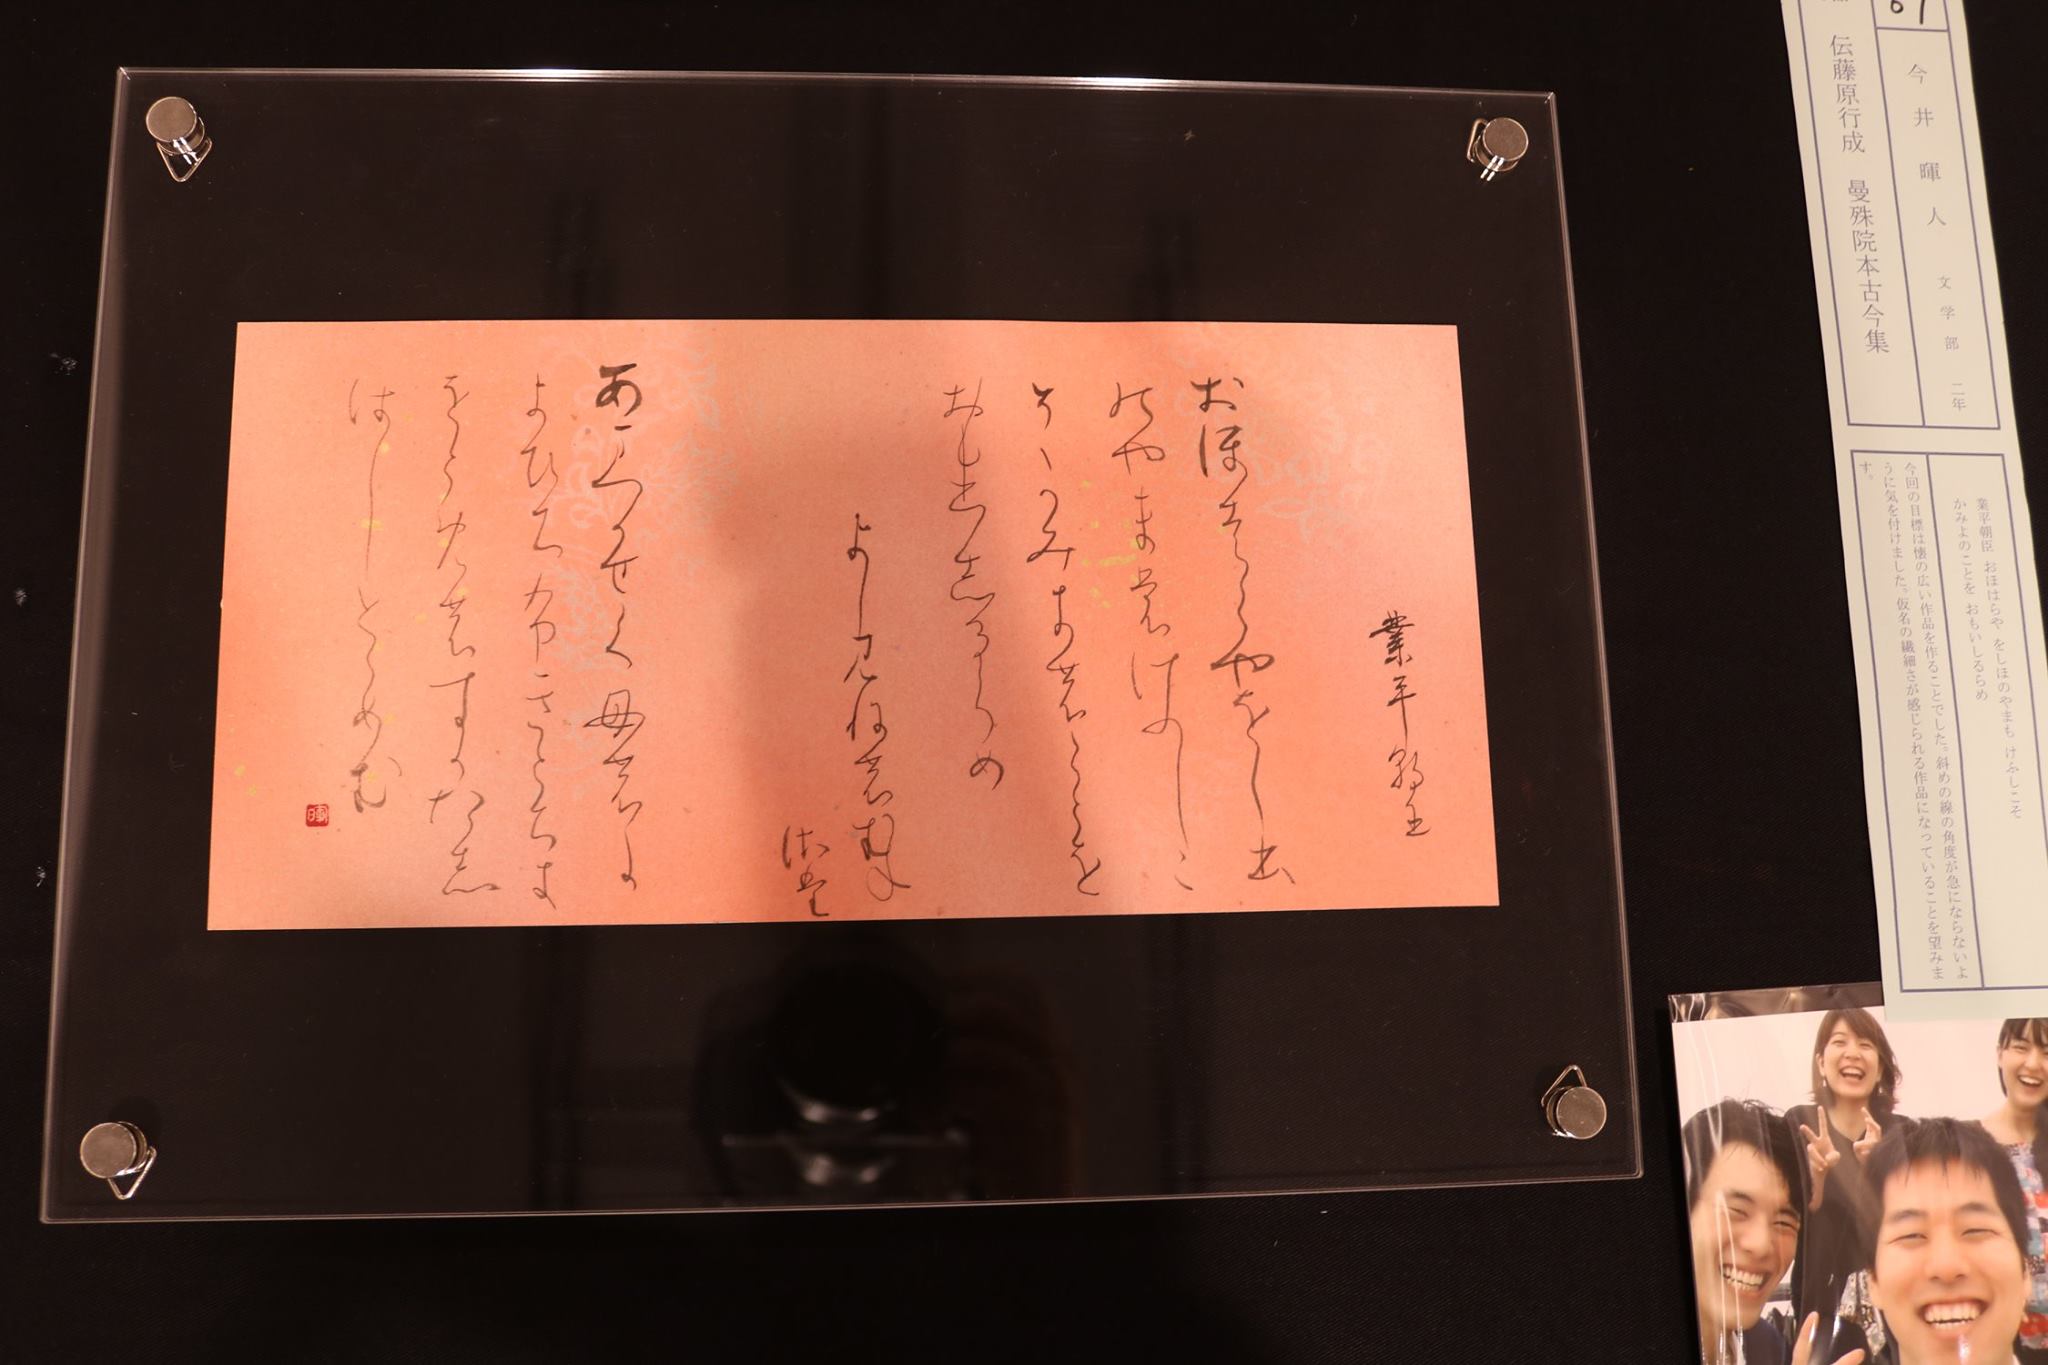 61
今井暉人 文学部 二年
伝藤原行成 曼殊院本古今集
業平朝臣 おほはらや をしほのやまも けふしこそ
かみよのことを おもいしるらめ
今回の目標は懐の広い作品を作ることでした。斜めの線の角度が急にならないよ
うに気を付けました。仮名の繊細さが感じられる作品になっていることを望みま
す。
業平朝臣
おほはらやをし本
のやま无けふしこ
そかみよのことを
おもひしるらめ
よしみねのむね
さた
あまつかせくもの
よひちふきとちよ
をとめのすかた
しはしとゝめむ
暉